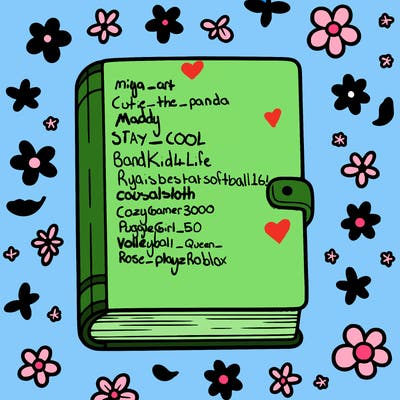 miga_art
Cutie_the_panda
Maddy
STAY_COOL
BandKid4Life
Ryaisbestatsoftball16!
causalsloth
CozyGamer3000
PuggleGirl_50
Volleyball_Queen_
Rose_playzRoblox